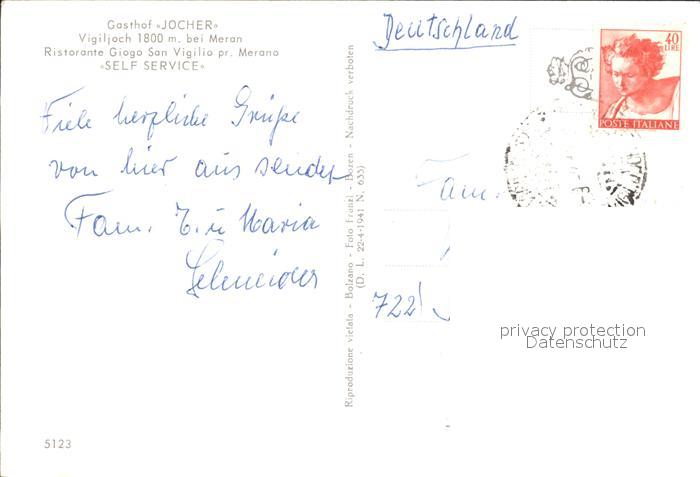 Gasthof »JOCHER«
Vigiljoch 1800 m. bei Meran
Ristorante Giogo San Vigilio pr. Merano
»SELF SERVICE«
Viele herzliche Grüße
von hier aus sendet
Fam. T. u Maria
Schneider
5123
Riproduzione vietata - Bolzano - Foto Fränzl - Bozen - Nachdruck verboten
(D. L. 22-4-1941 N. 633)
Deutschland
40
LIRE
POSTE ITALIANE
Fam.
722
privacy protection
Datenschutz